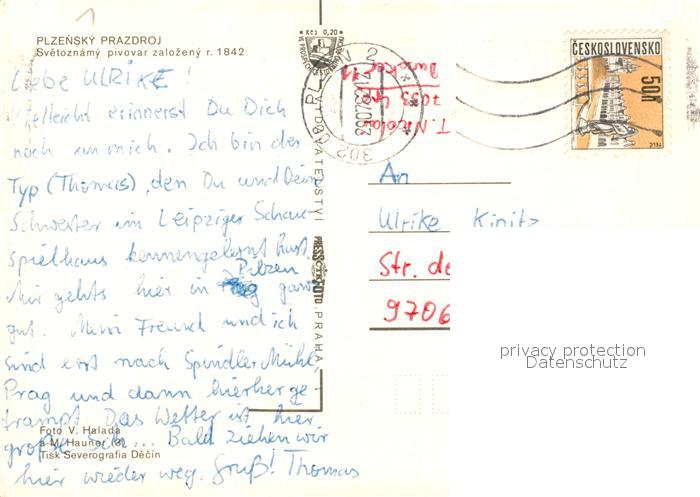 PLZEŇSKÝ PRAZDROJ
Světoznámý pivovar založený r. 1842
Liebe ULRIKE!
Vielleicht erinnerst Du Dich
noch an mich. Ich bin der
Typ (Thomas), den Du und Deine
Schwester im Leipziger Schau-
spielhaus kennengelernt hast.
Mir gehts hier in Pilzen ganz
gut. Mein Freund und ich
sind erst nach Spindler Mühle
Prag und dann hierher ge-
trampt. Das Wetter ist hier
große Sch... Bald ziehen wir
hier wieder weg. Gruß! Thomas
Foto V. Halada
a M. Hauner (3)
Tisk Severografia Děčín
Kčs 0,20
VYDAVATELSTVÍ PRESSFOTO PRAHA
302 00 PLZEŇ 2
ČESKOSLOVENSKO
50h
TELČ
T. Nicolai
7033
11
An
Ulrike Kinitz
Str. de
9706
privacy protection
Datenschutz